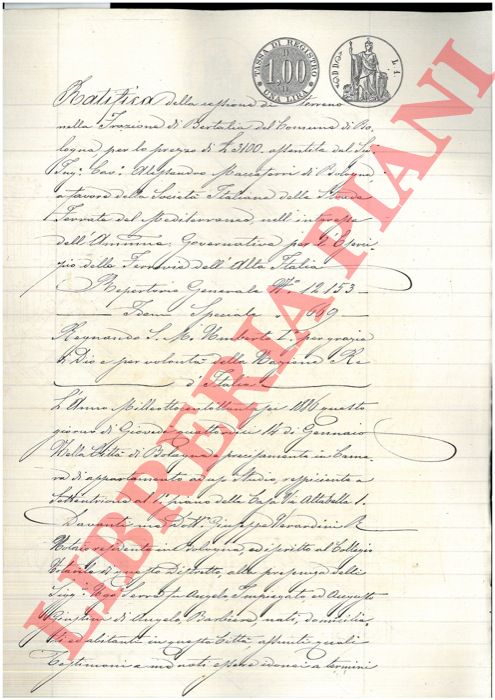 TASSA DI REGISTRO
1.00
UNA LIRA
L. 1.
Ratifica della cessione di terreno
nella Frazione di Bertalia del Comune di Bo-
logna, per lo prezzo di L. 3100, assentita dal Sig.
Ing. Cav. Alessandro di Bologna
a favore della Società Italiana delle Strade
Ferrate del Mediterraneo, nell'interesse
dell'Amm.ne Governativa per l'Eser-
cizio delle Ferrovie dell'Alta Italia
Repertorio Generale N.° 12153
Idem Speciale " 669
Regnando S. M. Umberto I.° per grazia
di Dio e per volontà della Nazione Re
d'Italia
L'Anno Milleottocentottantasei 1886 questo
giorno di Giovedì quattordici 14 di Gennaio
Nella Città di Bologna e precisamente in Came-
ra di appartamento ad uso Studio, respiciente a
Settentrione al 1° piano della Casa Via Altabella 1.
Davanti me Dott. Giuseppe Verardini R.
Notaro residente in Bologna, ed iscritto al Collegio
Notarile di questo Distretto, alla presenza delli
Sig.ri Angelo Impiegato ed Augusto
di Angelo, Barbiere, nati, domicilia-
ti ed abitanti in questa Città, assunti quali
Testimoni a me noti essere idonei a termini
LIBRERIA PIANI